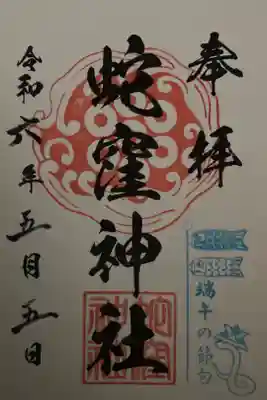 奉拝
蛇窪神社
令和六年五月五日
端午の節句
蛇窪神社